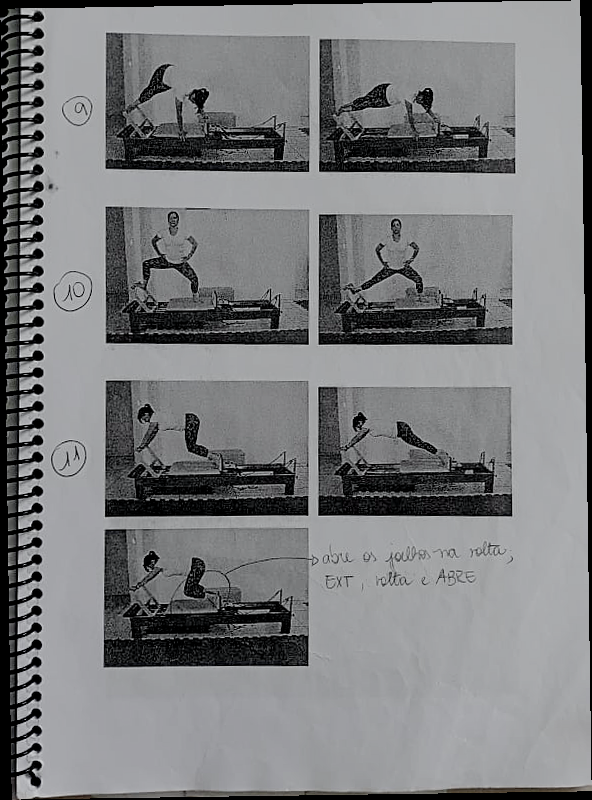 9
10
11
abre os joelhos na volta;
EXT, volta e ABRE